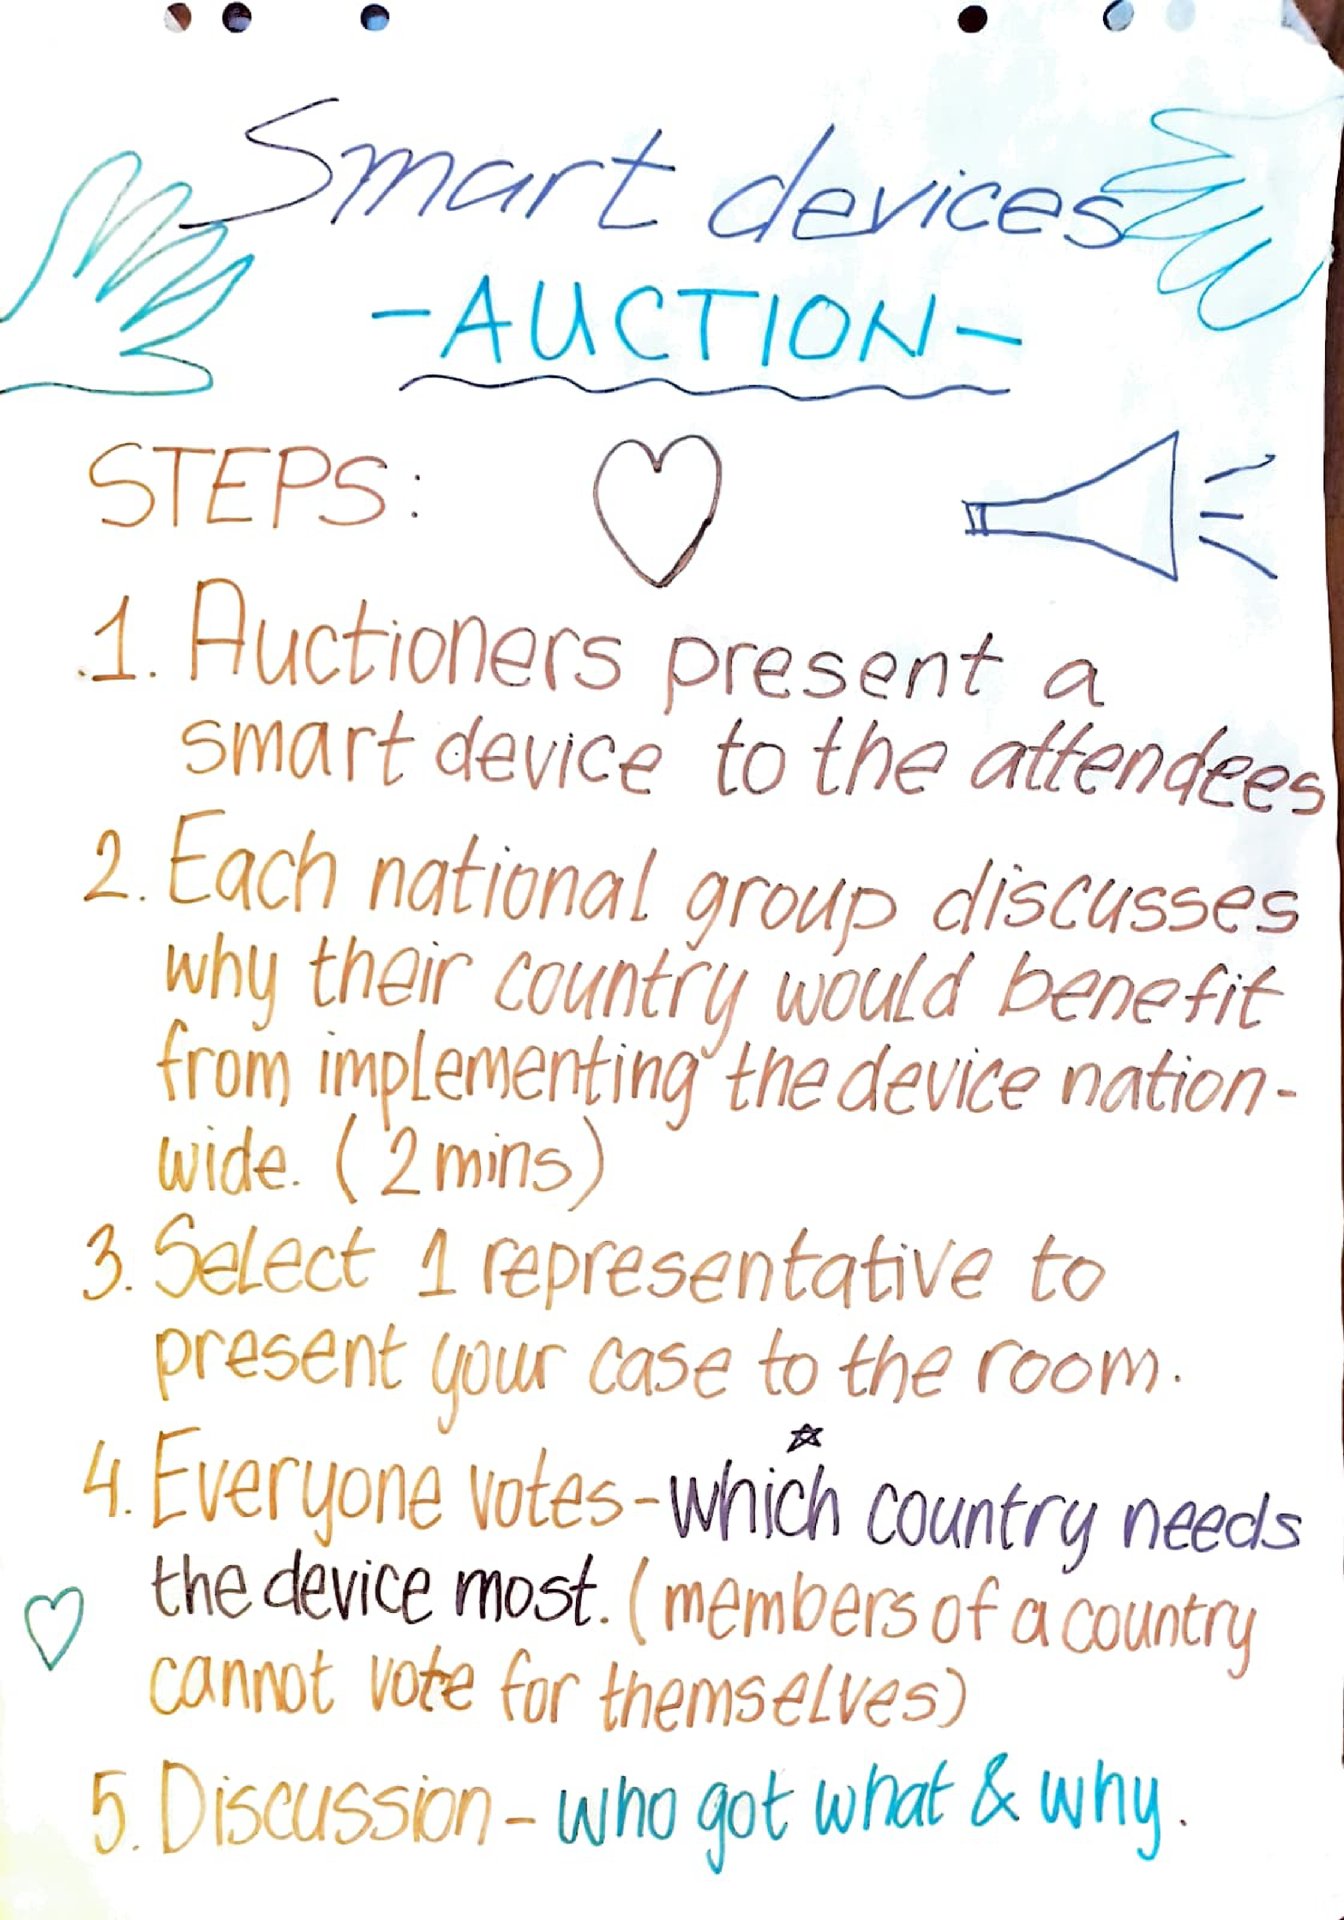 Smart devices
-AUCTION-
STEPS:
1. Auctioners present a
smart device to the attendees
2. Each national group discusses
why their country would benefit
from implementing the device nation-
wide. (2 mins)
3. Select 1 representative to
present your case to the room.
4. Everyone votes - which country needs
the device most. (members of a country
cannot vote for themselves)
5. Discussion - who got what & why.